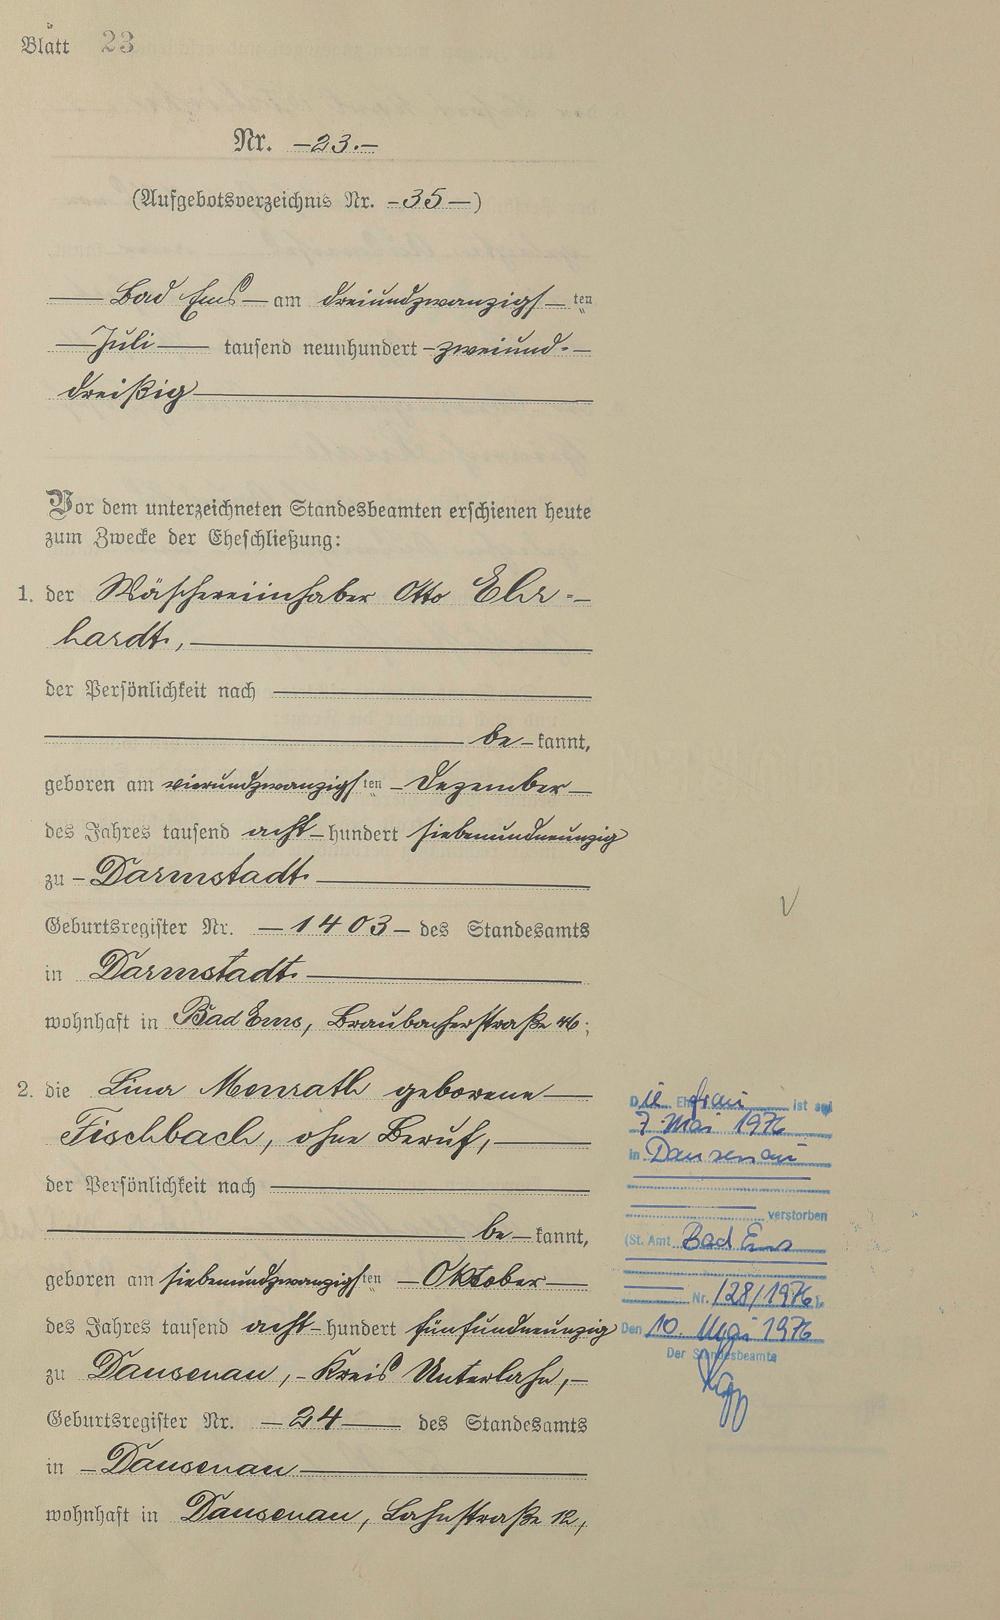 Blatt 23
Nr. —23.—
(Aufgebotsverzeichnis Nr. —35—)
Bad Ems — am dreiundzwanzigs— ten
— Juli — tausend neunhundert —zweiund-—
dreißig
Vor dem unterzeichneten Standesbeamten erschienen heute
zum Zwecke der Eheschließung:
1. der Wäschereiinhaber Otto Ehr-—
hardt,
der Persönlichkeit nach
be—kannt,
geboren am vierundzwanzigsten — Dezember —
des Jahres tausend acht—hundert siebenundneunzig
zu — Darmstadt.
Geburtsregister Nr. —1403— des Standesamts
in Darmstadt.
wohnhaft in Bad Ems, Braubacherstraße 46;
2. die Lina Menrath geborene —
Fischbach, ohne Beruf,
der Persönlichkeit nach
be—kannt,
geboren am siebenundzwanzigsten — Oktober —
des Jahres tausend acht—hundert fünfundneunzig
zu Dausenau, — Kreis Unterlahn, —
Geburtsregister Nr. —24— des Standesamts
in — Dausenau —
wohnhaft in Dausenau, Lahnstraße 12,
Die Ehefrau ist seit
7. Mai 1976
in Dausenau
verstorben
(St. Amt Bad Ems
Nr. 128/1976).
Den 10. Mai 1976
Der Standesbeamte